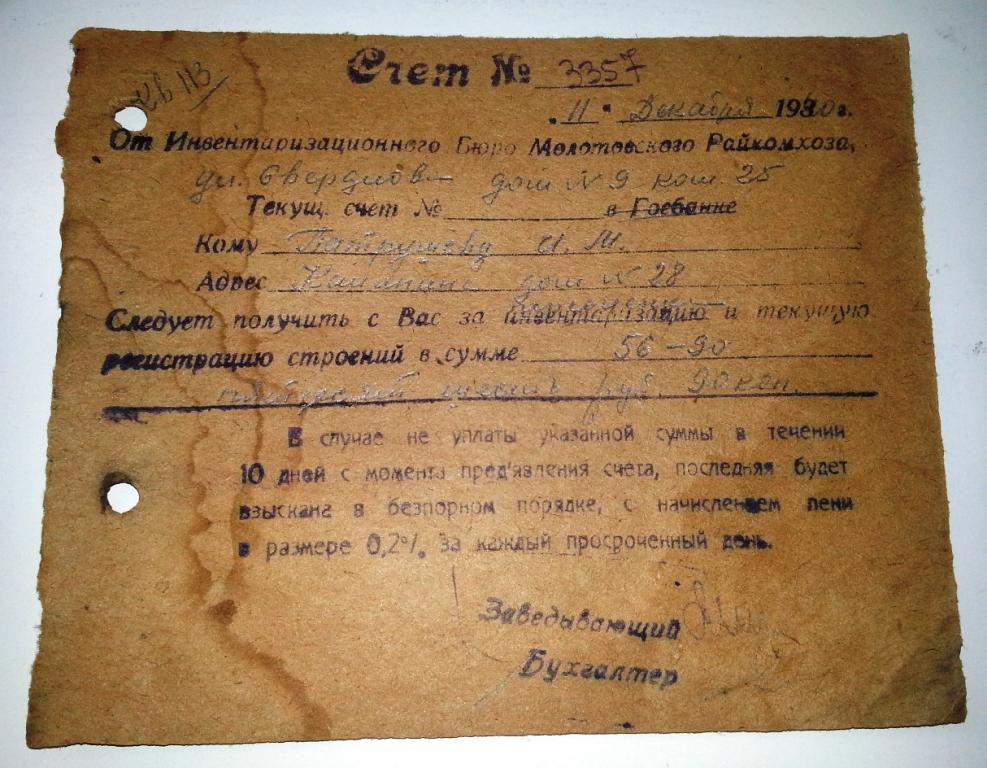 Кв 113
Счет № 3357
"11" Декабря 1940 г.
От Инвентаризационного Бюро Молотовского Райкомхоза,
ул. Свердлов дом № 9 ком. 25
Текущ. счет № в Госбанке
Кому Патрушеву И. М.
Адрес Калинина дом № 28
Следует получить с Вас за инвентаризацию и текущую
регистрацию строений в сумме 56-90
пятьдесят шесть руб. 90 коп.
В случае не уплаты указанной суммы в течении
10 дней с момента пред'явления счета, последняя будет
взыскана в безпорном порядке, с начислением пени
в размере 0,2% за каждый просроченный день.
Заведывающий
Бухгалтер